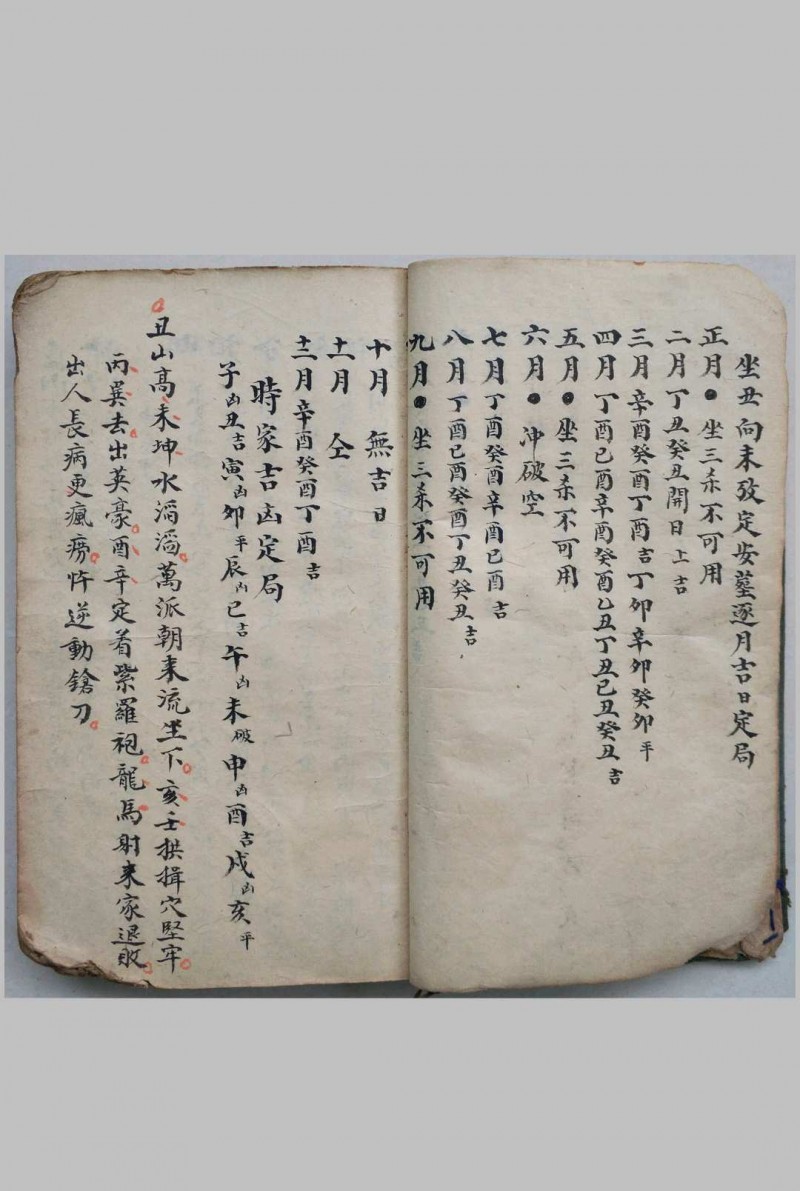 坐丑向未攷定安墓逐月吉日定局
正月● 坐三杀不可用
二月丁丑癸丑開日上吉
三月辛酉癸酉丁酉吉丁卯辛卯癸卯平
四月丁酉已酉辛酉癸酉乙丑丁丑已丑癸丑吉
五月●坐三杀不可用
六月● 沖破空
七月丁酉癸酉辛酉已酉吉
八月丁酉已酉癸酉丁丑癸丑吉
九月●坐三杀不可用
十月 無吉日
十一月 仝
十二月辛酉癸酉丁酉吉
時家吉凶定局
子凶丑吉寅凶卯平辰凶已吉午凶未破申凶酉吉戌凶亥平
丑山高来坤水滔滔萬派朝来流坐下亥壬拱揖穴堅牢
丙巽去出英豪酉辛定着紫羅袍龍馬射来家退敗
出人長病更瘋癆忤逆動鎗刀